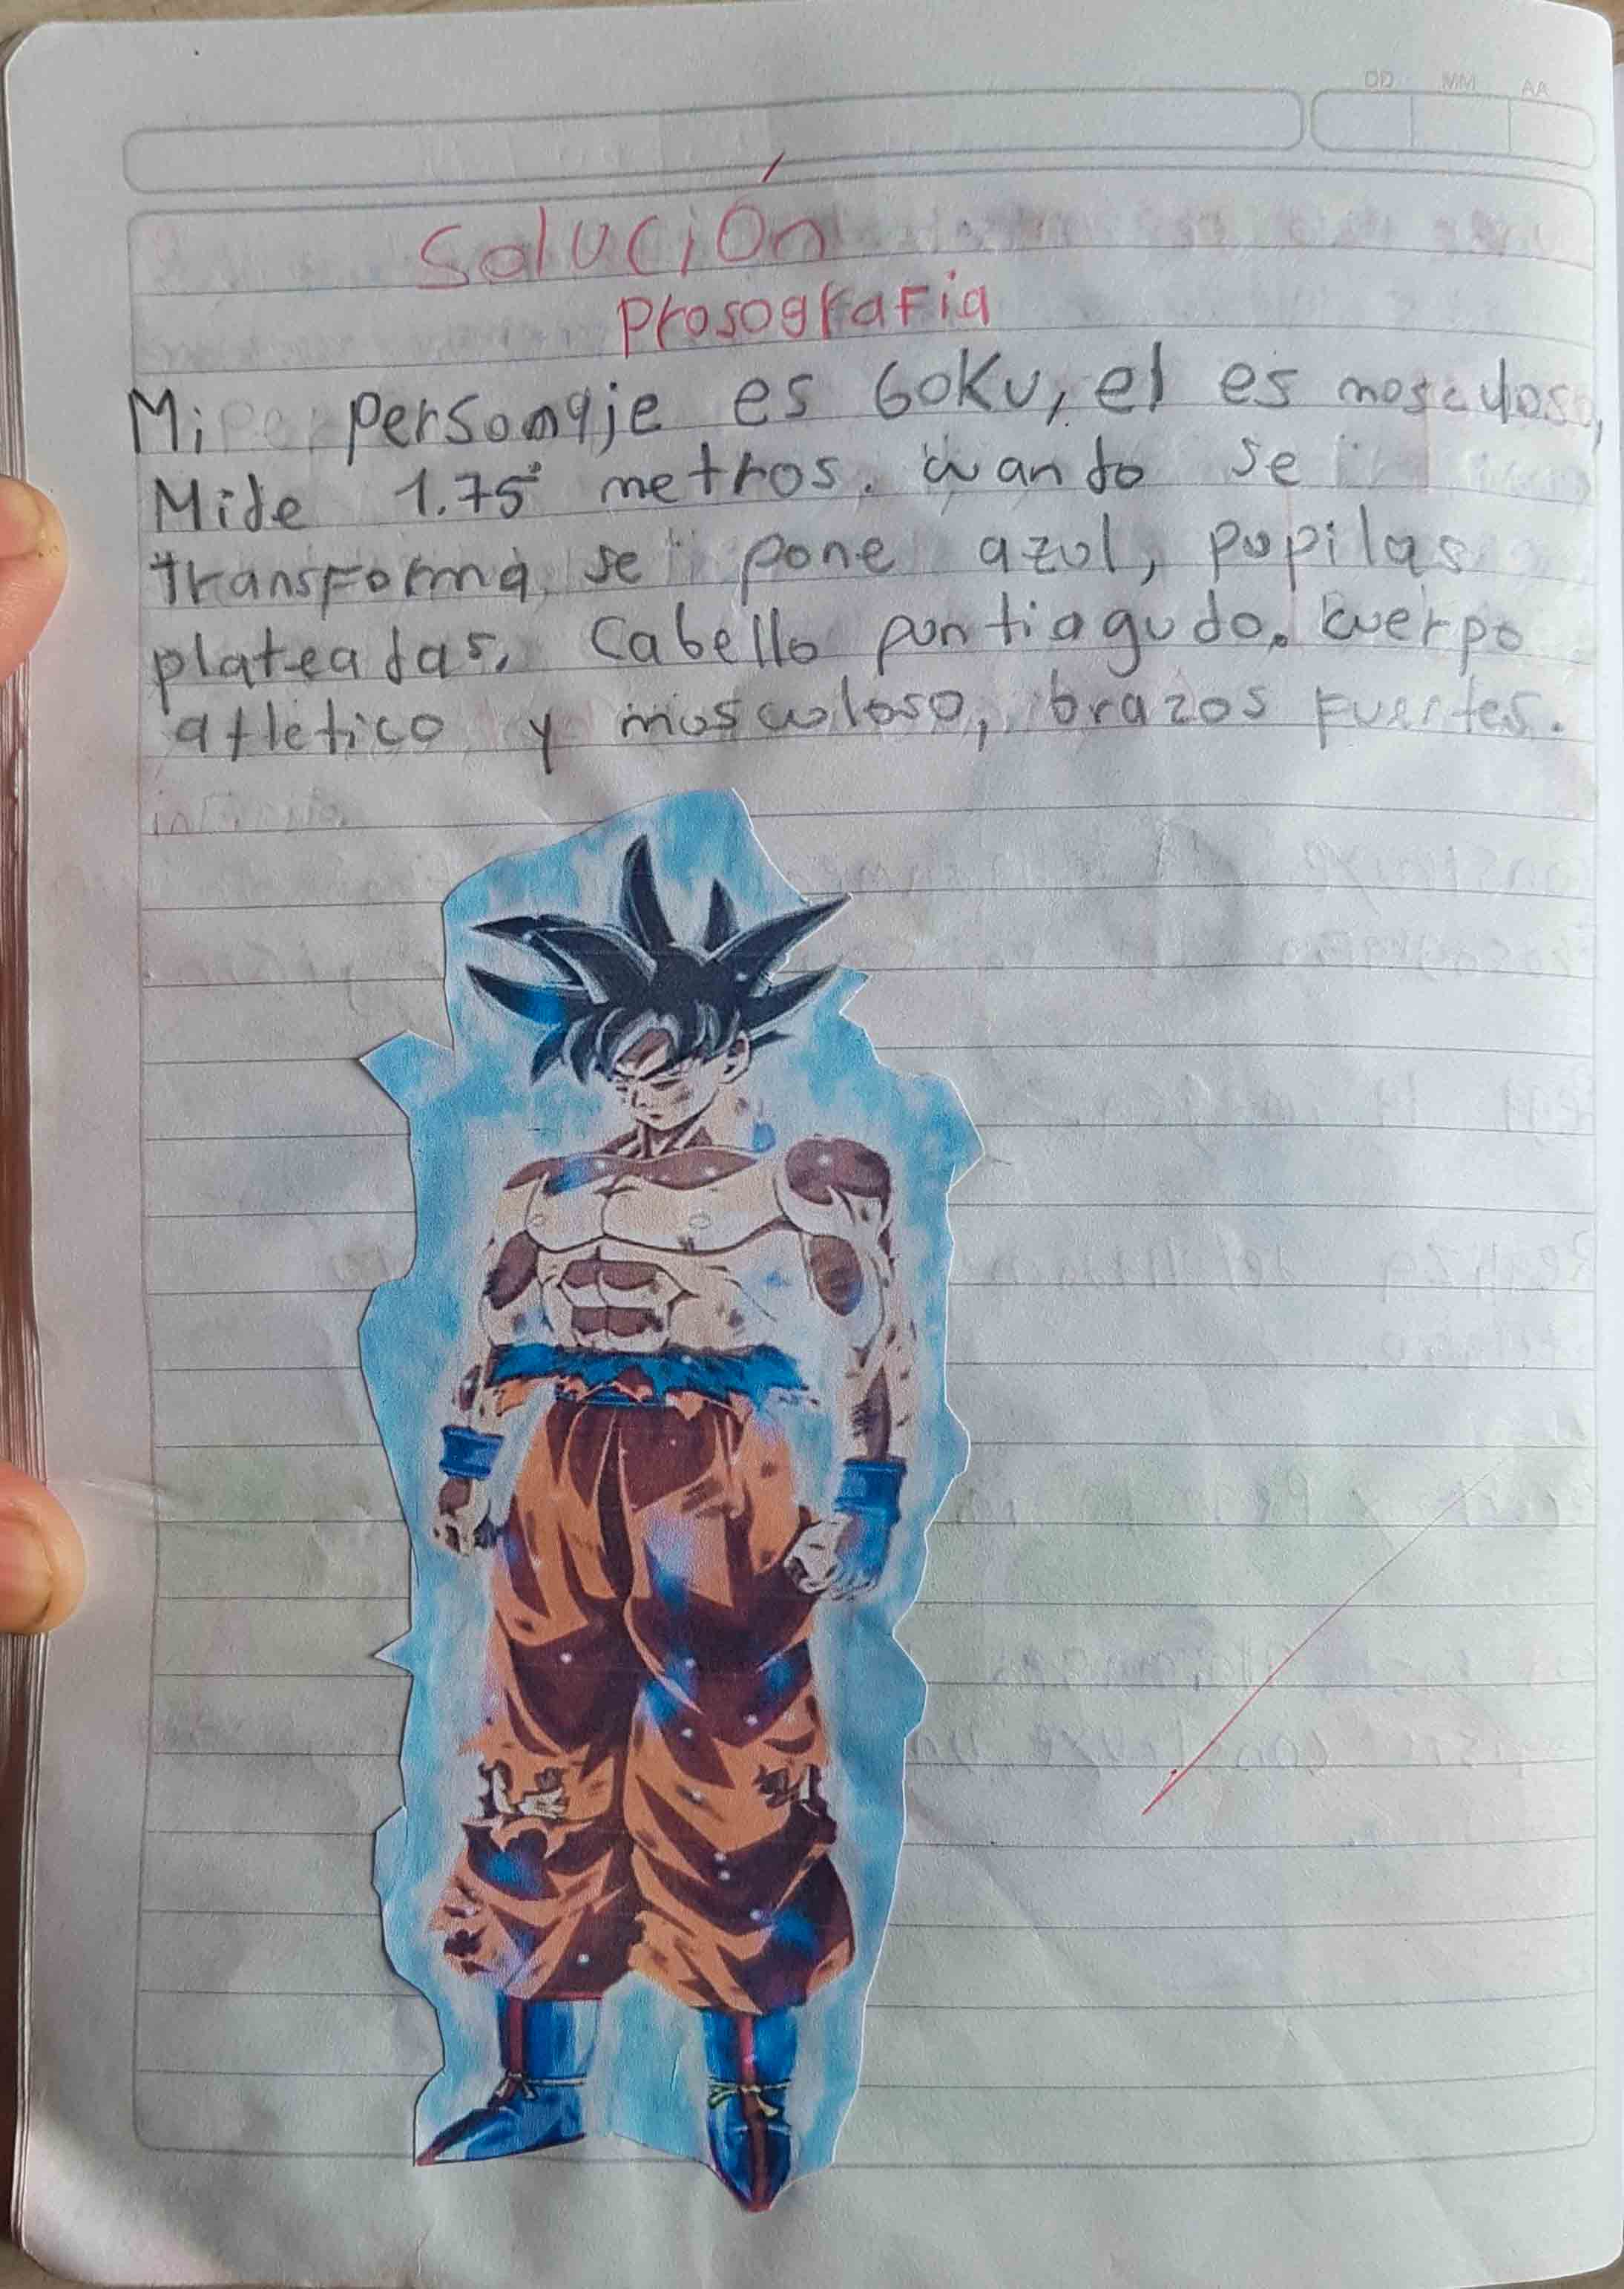 DD MM AA
Solución
Prosografia
Mi personaje es Goku, el es musculoso,
Mide 1.75 metros. cuando se
transforma se pone azul, pupilas
plateadas, Cabello puntiagudo. cuerpo
atletico y musculoso, brazos fuertes.